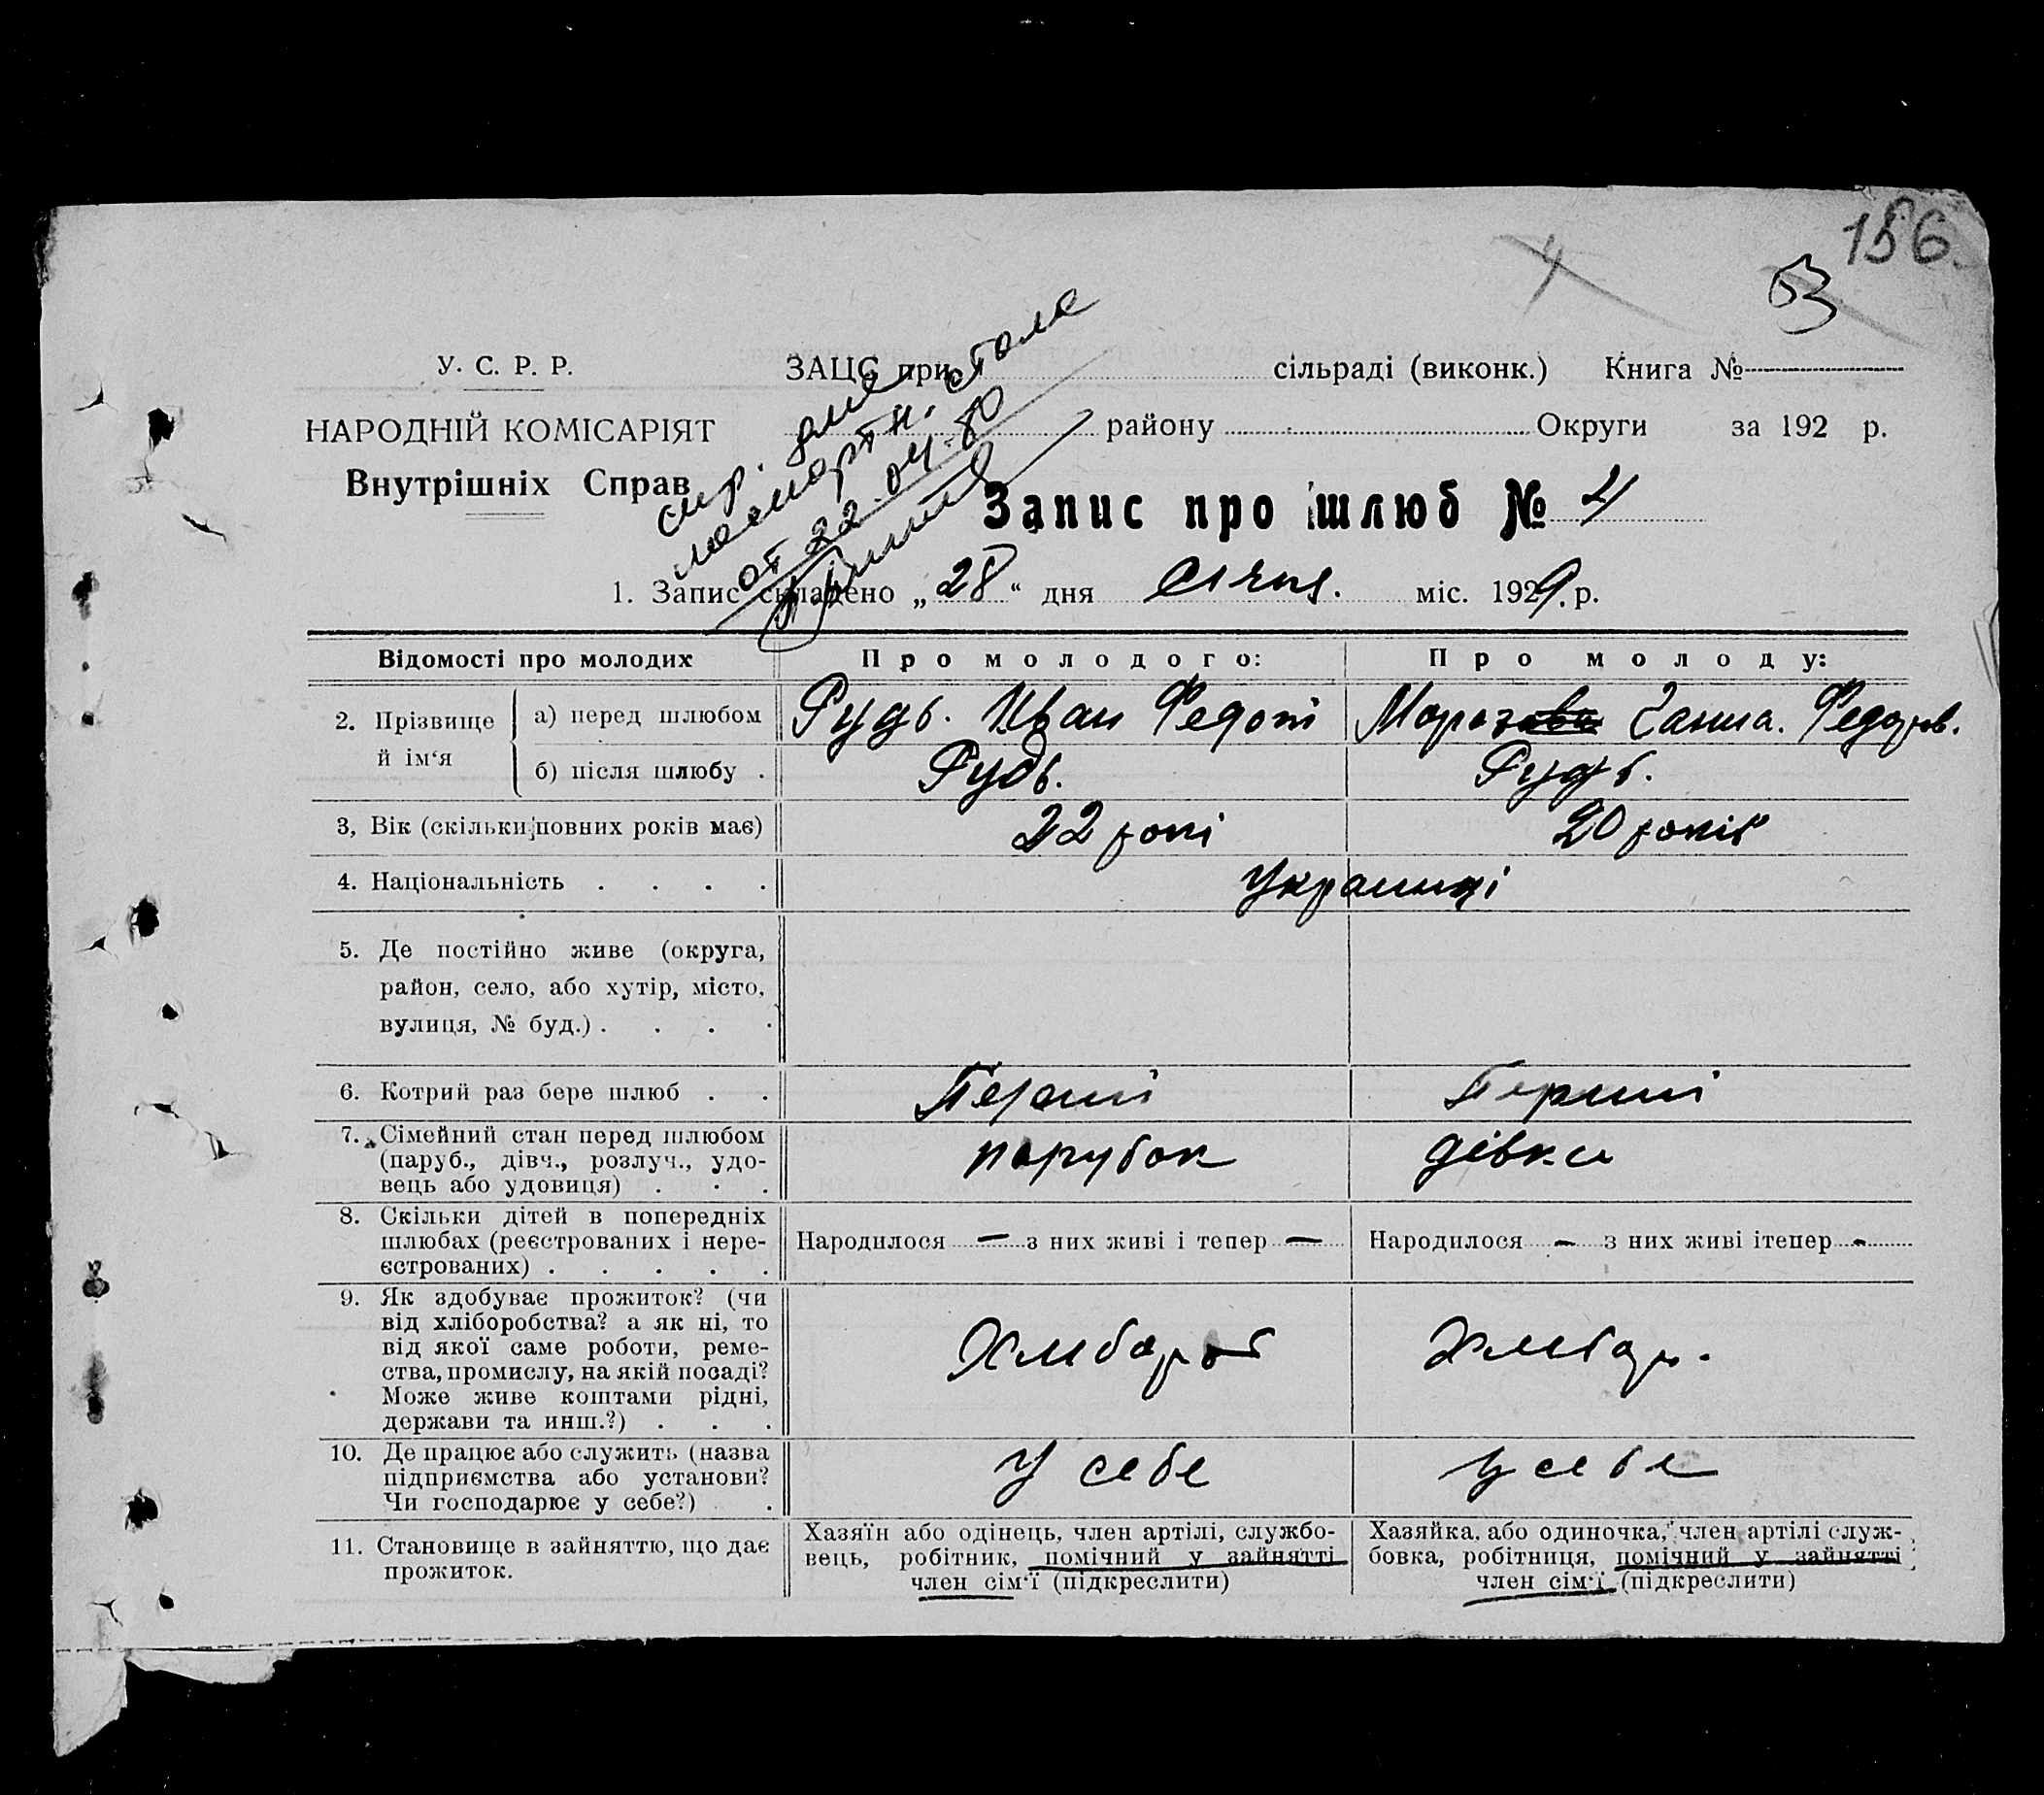 156
4
53
У. С. Р. Р.
ЗАЦС при сільраді (виконк.) Книга №
НАРОДНІЙ КОМІСАРІЯТ
району Округи за 192 р.
Внутрішніх Справ
спр. для
паспортн. стола
от 22.04.80
Запис про шлюб № 4
1. Запис складено „28“ дня січня. міс. 1929. р.
Відомості про молодих
Про молодого:
Про молоду:
2. Прізвище й ім‘я
а) перед шлюбом
Рудь. Иван Федот
Мороз Ганна. Федоров.
б) після шлюбу .
Рудь.
Рудь.
3, Вік (скільки повних років має)
22 рокі
20 років
4. Національність . . . .
Українці
5. Де постійно живе (округа,
район, село, або хутір, місто,
вулиця, № буд.) . . . .
6. Котрий раз бере шлюб . .
Перший
Перший
7. Сімейний стан перед шлюбом
(паруб., дівч., розлуч., удо-
вець або удовиця) . . .
парубок
дівка
8. Скільки дітей в попередніх
шлюбах (реєстрованих і нере-
єстрованих) . . . . .
Народилося — з них живі і тепер —
Народилося - з них живі ітепер -
9. Як здобуває прожиток? (чи
від хліборобства? а як ні, то
від якої саме роботи, реме-
ства, промислу, на якій посаді?
Може живе коштами рідні,
держави та инш.?) . . .
Хлибороб
Хлибор.
10. Де працює або служить (назва
підприємства або установи?
Чи господарює у себе?) .
у себе
у себе
11. Становище в зайняттю, що дає
прожиток.
Хазяїн або одінець, член артілі, службо-
вець, робітник, помічний у зайнятті
член сім‘ї (підкреслити)
Хазяйка, або одиночка, член артілі служ-
бовка, робітниця, помічний у зайнятті
член сім‘ї (підкреслити)